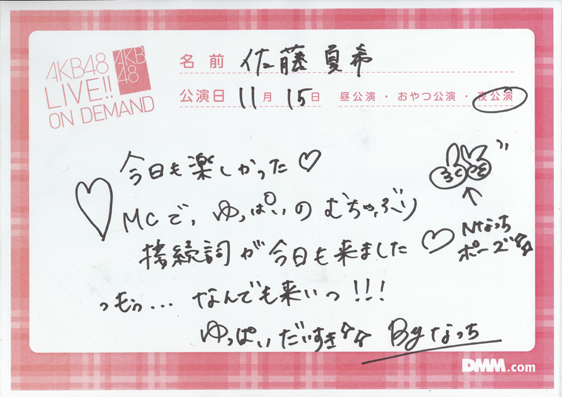 AKB48
LIVE!!
ON DEMAND
AKB
48
名前 佐藤夏希
公演日 11月15日 昼公演・おやつ公演・夜公演
今日も楽しかった♡
MCで、ゆっぱいのむちゃぶり
接続詞が今日も来ました♡
Nなっち
ポーズ
っもぅ...なんでも来いっ!!!
ゆっぱいだいすき
Byなっち
DMM.com